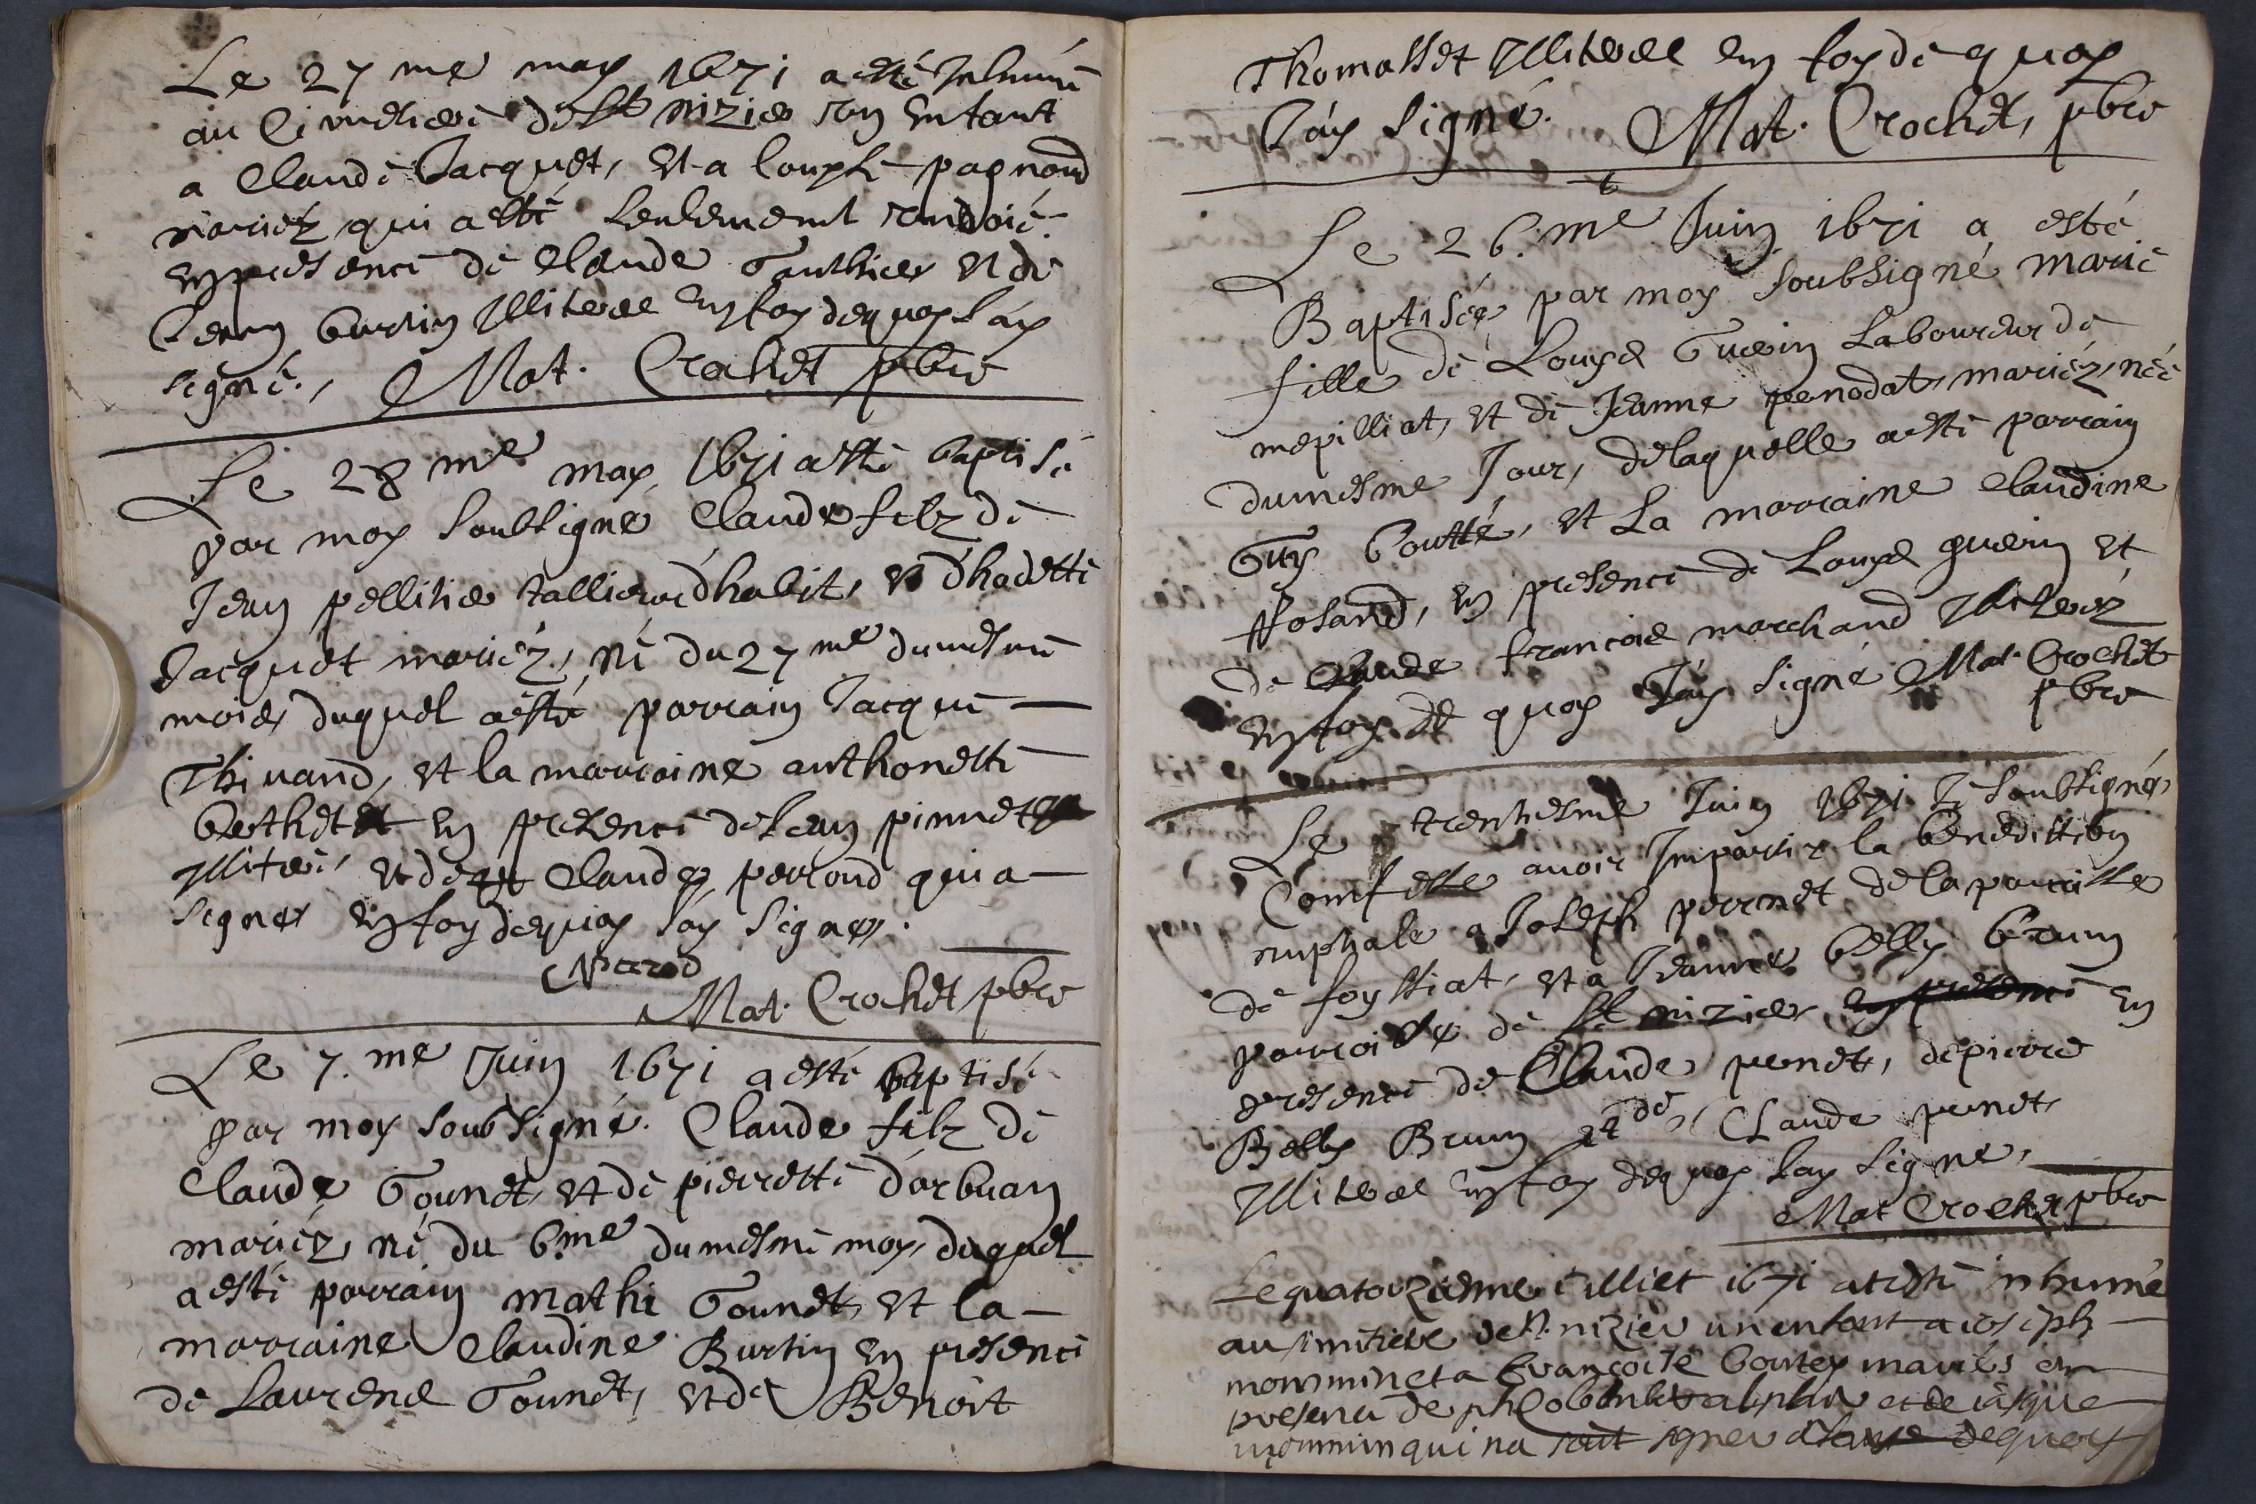 Le 27 me may 1671 a esté Inhumé
au Cimetiere de St nizier un enfant
a Claude Jacquet, et a Louyse pagnond
mariéz qui a esté seulement ondoié
en presence de Claude Gauthier et de
Jean burtin Illiteréz en foy de quoy J'ay
signé. Mat. Crochet pbre
Le 28 me may 1671 a esté baptisé
par moy soubsigné Claude filz de
Jean pellitier tallieur d'habit, et d'
Jacquet mariéz, né du 27 me du mesme
mois, duquel a esté parrain Jacque
Thivand, et la marraine anthonette
berthet en presence de Jean pinnet
Illiteré et de Claude perroud qui a
signé en foy de quoy J'ay signé.
Mat. Crochet pbre
Le 7.me Juin 1671 a esté baptisé
par moy soubsigné. Claude filz de
Claude Gounet, et de pierrette d'arbuan
mariéz, né du 6.me du mesme moy, duquel
a esté parrain mathi Gounet, et la
marraine Claudine Burtin en presence
de Laurend Gounet, et de Benoit
Thomasset Illiteréz en foy de quoy
J'ay signé. Mat. Crochet, pbre
Le 26.me Juin 1671 a esté
Baptisée par moy soubsigné marie
fille de Louys Guerin Laboureur de
mepilliat, et de Jeanne penodat, mariéz, née
du mesme Jour, de laquelle a esté parrain
Guy boutté, et La marraine Claudine
en presence de Louys guerin et
de Claude francois marchand Illiteréz
en foy de quoy J'ay signé Mat. Crochet
pbre
Le trentiesme Juin 1671 Je soubsigné
Confesse avoir Impartir la benediction
nuptiale a Joseph perrnet de la parroisse
de foyssiat, et a Jeanne belly brun
parroisse de St nizier, en presence en
presence de Claude penet, de pierre
Belly Brun et de Claude penet,
Illiteréz en foy de quoy J'ay signé,
Mat Crochet pbre
Le quatorzieme iilliet 1671 at esté inhumé
au simitiere de St. nizier un enfant a ioseph
mommin et a francoise boutey mariés en
presence de et de iasque
mommin qui na signer de quoy